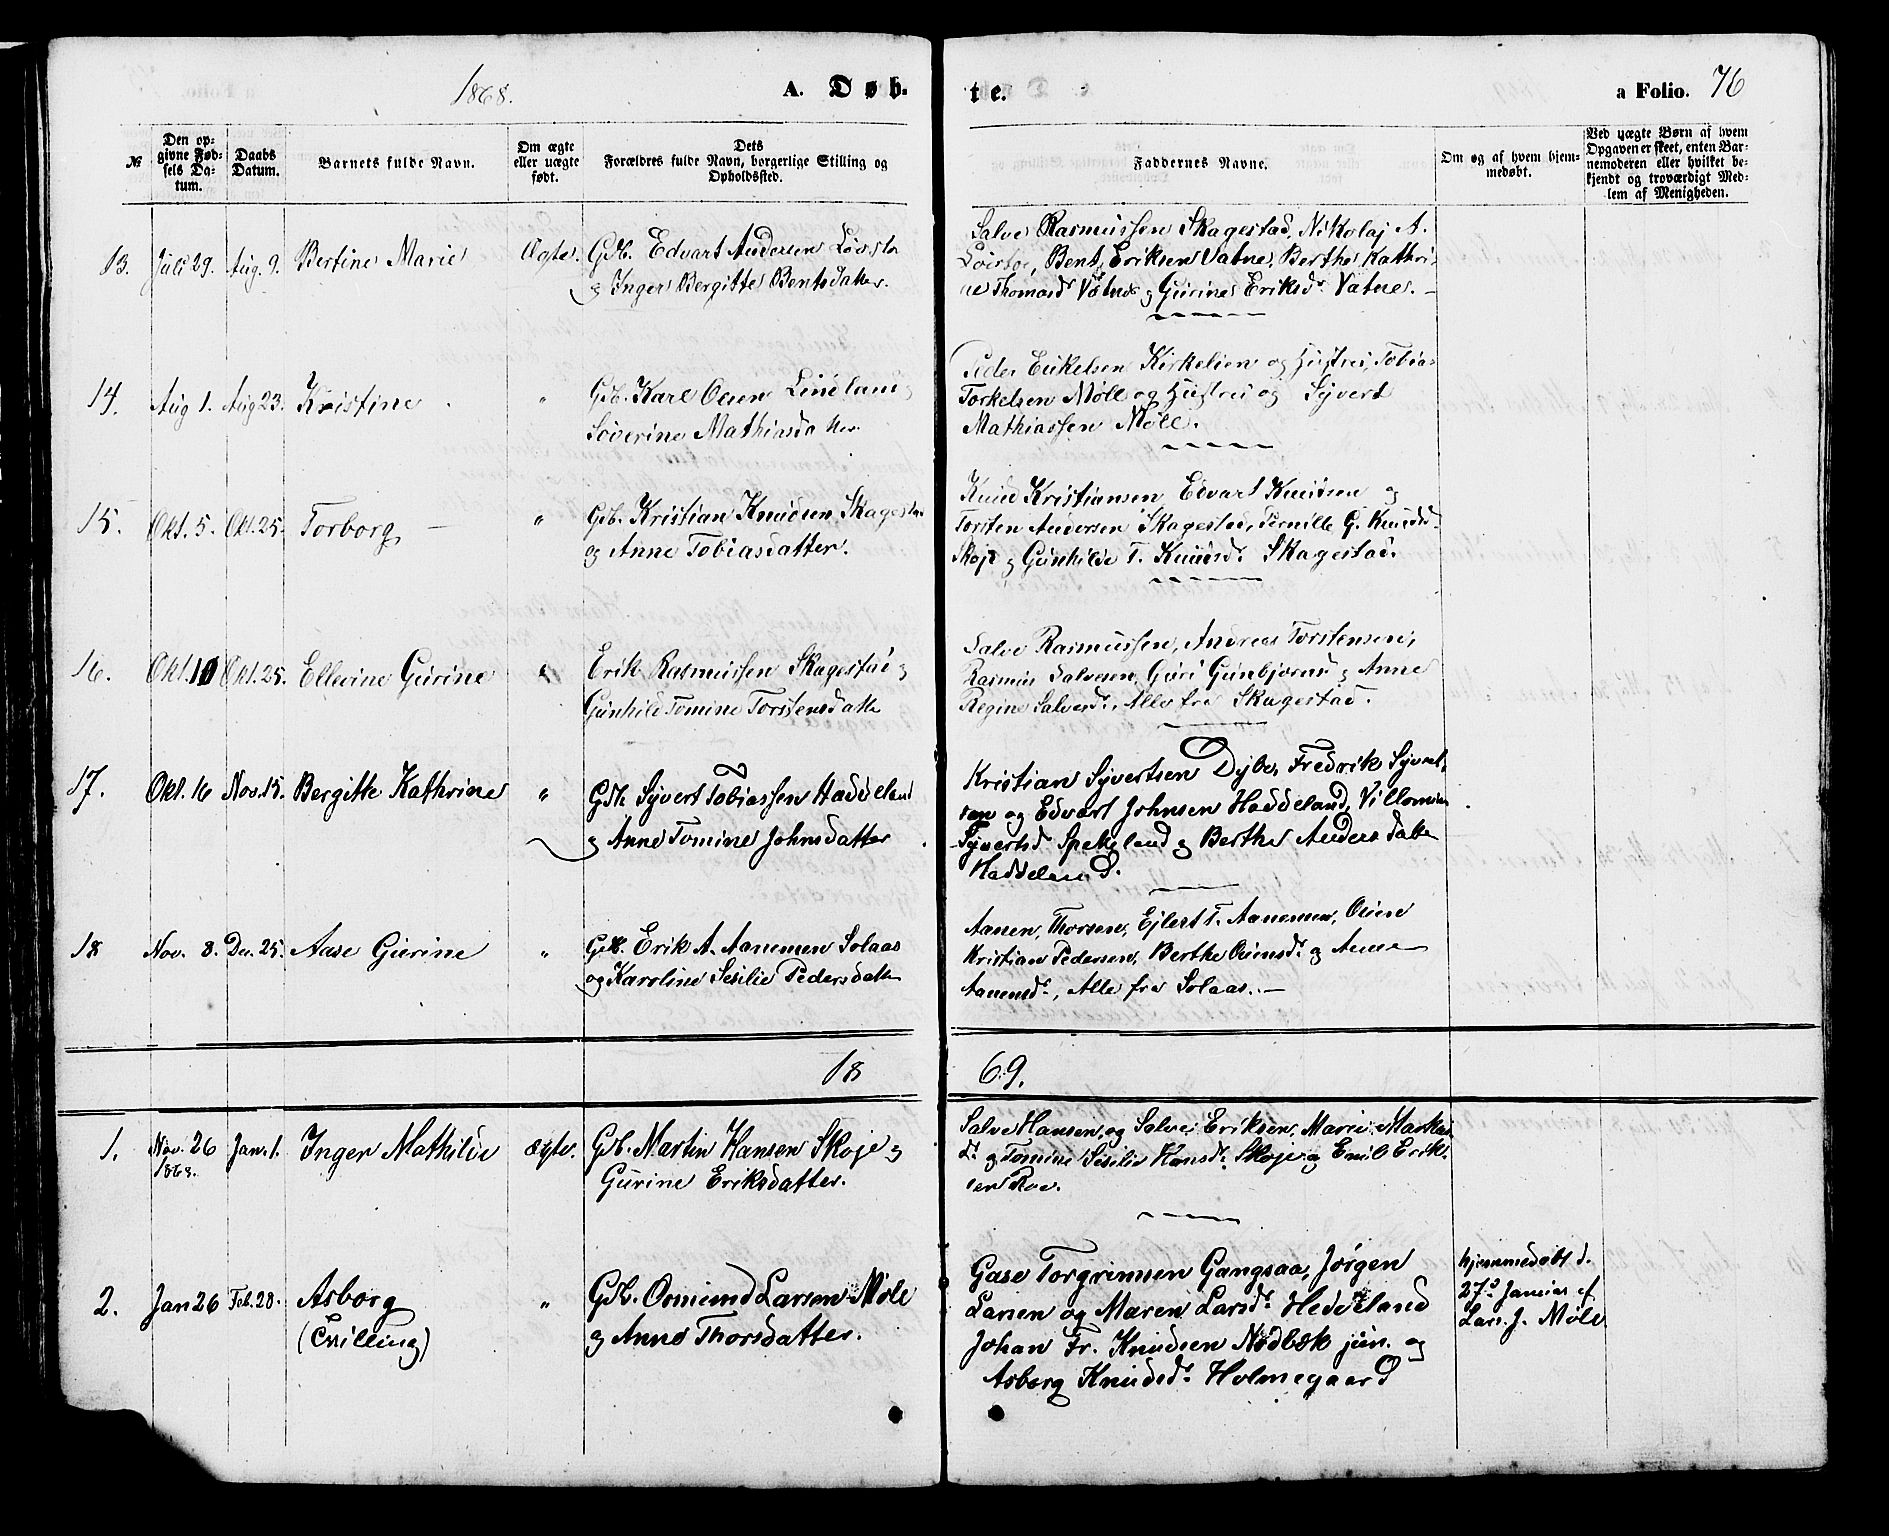 1868. A. Døb-
te. a Folio. 76
№
Den op-
givne Fød-
sels Da-
tum.
Daabs
Datum.
Barnets fulde Navn.
Om ægte
eller uægte
født.
Dets
Forældres fulde Navn, borgerlige Stilling og
Opholdssted.
Faddernes Navne.
Om og af hvem hjem-
medøbt.
Ved uægte Børn af hvem
Opgaven er skeet, enten Bar-
nemoderen eller hvilket be-
kjendt og troværdigt Med-
lem af Menigheden.
13. Juli 29. Aug. 9. Bertine Marie Ægte.
Gbr. Edvart Andersen
og Inger Bergitte Bentsdatter.
Salve Rasmussen Skagestad, Nikolaj A.
Bent Eriksen Vatne, Berthe Kathri-
ne Thomasd. Vatne og Gurine Eriksd. Vatne. –
14. Aug 1. Aug 23. Kristine "
Gbr. Karl Osen Lindland
Severine Mathiasdatter
Peder Kirkelien og Hustru, Tobias
Torkelsen Møll og Hustru og Syvert
Mathiassen Møll.
15. Okt. 5. Okt. 25. Torborg – "
Gb. Kristian Knudsen Skagestad
og Anne Tobiasdatter.
Knud Kristiansen, Edvart Knudsen og
Torsten Andersen Skagestad, Pernille G. Knudsd.
Skoje og Gunhilde T. Knudsd. Skagestad.
16. Okt. 10 Okt. 25. Ellevine Gurine "
Erik Rasmussen Skagestad og
Gunhild Tomine Torstensdatte
Salve Rasmussen, Andreas Torstensen,
Rasmus Salvesen, Guri Gunbjørnsd og Anne
Regine Salvesd. Alle fra Skagestad.
17. Okt. 16 Nov. 15. Bergitte Kathrine "
Gbr. Syvert Tobiassen Haddeland
og Anne Tomine Johnsdatter
Kristian Syvertsen Dybo, Fredrik Syvert-
sen og Edvart Johnsen Haddeland, Villomine
Syvertsd Spekeland og Berthe Andersdatte
Haddeland.
18 Nov. 8. De. 25. Aase Gurine "
Gbr. Erik A. Aanensen Solaas
og Karoline Sesilie Pedersdatte
Aanen Thorsen, Ejlert T. Aanensen,
Kristian Pedersen, Berthe og Anne
Aanensd., Alle fra Solaas. –
18 69.
1. Nov. 26 Jan. 1. Inger Mathilde ægte.
1868.
Gb. Martin Hansen Skoje og
Gurine Eriksdatter.
Salve Hansen, og Salve Eriksen, Marie
d. og Tomine Sesilie Hansd. Skoje og Emil Erik-
sen Roe.
2. Jan 26 Feb. 28. Asborg "
(Tvilling)
Gbr. Osmund Larsen Møll
og Anne Thorsdatter.
Gase Torgrimsen Gangsaa, Jørgen
Larsen og Maren Larsd. Heddeland
Johan Fr. Knudsen Nødbæk jun. og
Asborg Knudsd. Holmegaard
hjemmedøbt d.
27. Januar af
Lars J. Møll